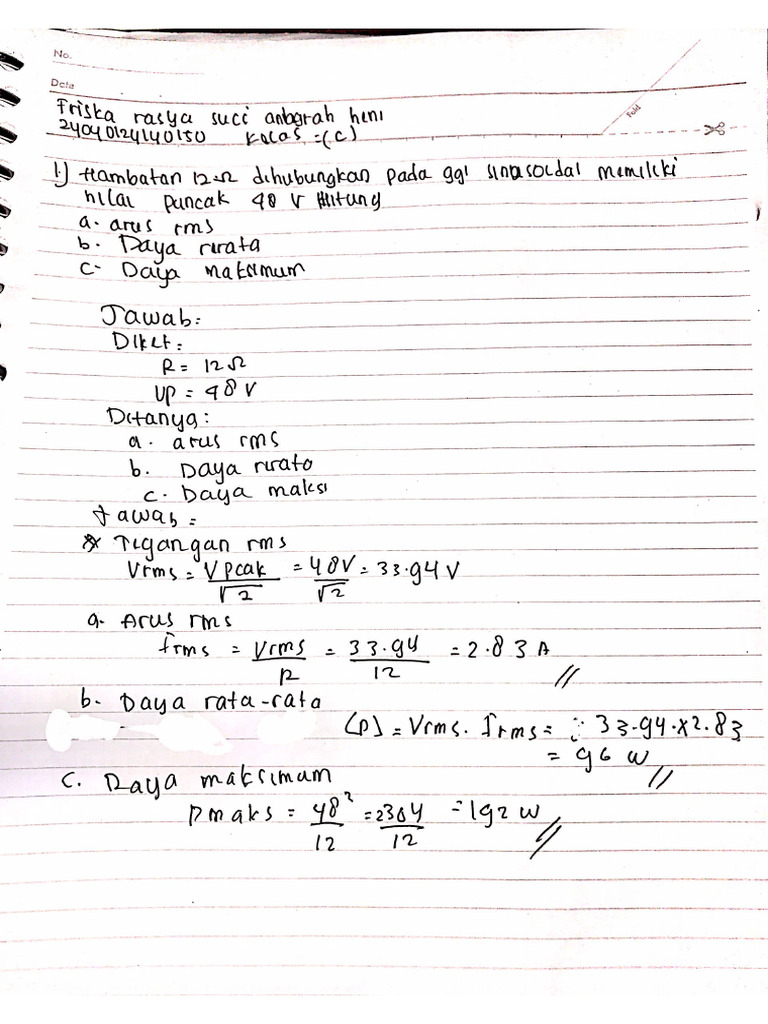 No.
Date
Friska rasya suci anbgrah heni
24040124140150 Kelas =(C)
Fold
1) Hambatan 12 Ω dihubungkan pada ggl sinusoidal memiliki
nilai puncak 48 V Hitung
a. arus rms
b. Daya rerata
c- Daya maksimum
Jawab:
Diket:
R = 12 Ω
VP = 48 V
Ditanya:
a. arus rms
b. Daya rerata
c. Daya maksi
Jawab =
* Tegangan rms
Vrms = Vpeak/√2 = 48V/√2 = 33.94 V
a. Arus rms
Irms = Vrms/R = 33.94/12 = 2.83 A //
b. Daya rata-rata
(P) = Vrms. Irms = 33.94.x2.83
= 96 W //
c. Daya maksimum
Pmaks = 48²/12 = 2304/12 = 192 W //